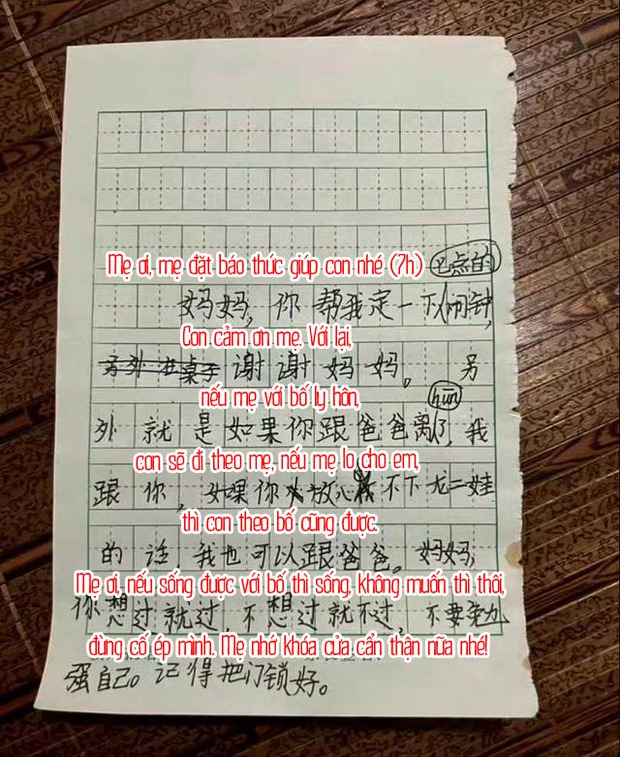 Mẹ ơi, mẹ đặt báo thức giúp con nhé (7h) 七点的
妈妈，你帮我定一下闹钟，
Con cảm ơn mẹ. Với lại,
谢谢妈妈。另
nếu mẹ với bố ly hôn, hūn
外就是如果你跟爸爸离了，我
con sẽ đi theo mẹ, nếu mẹ lo cho em,
跟你，如果你放心不下尤二娃
thì con theo bố cũng được.
的话我也可以跟爸爸。妈妈，
Mẹ ơi, nếu sống được với bố thì sống, không muốn thì thôi,
你想过就过，不想过就不过，不要勉
đừng cố ép mình. Mẹ nhớ khóa cửa cẩn thận nữa nhé!
强自己。记得把门锁好。